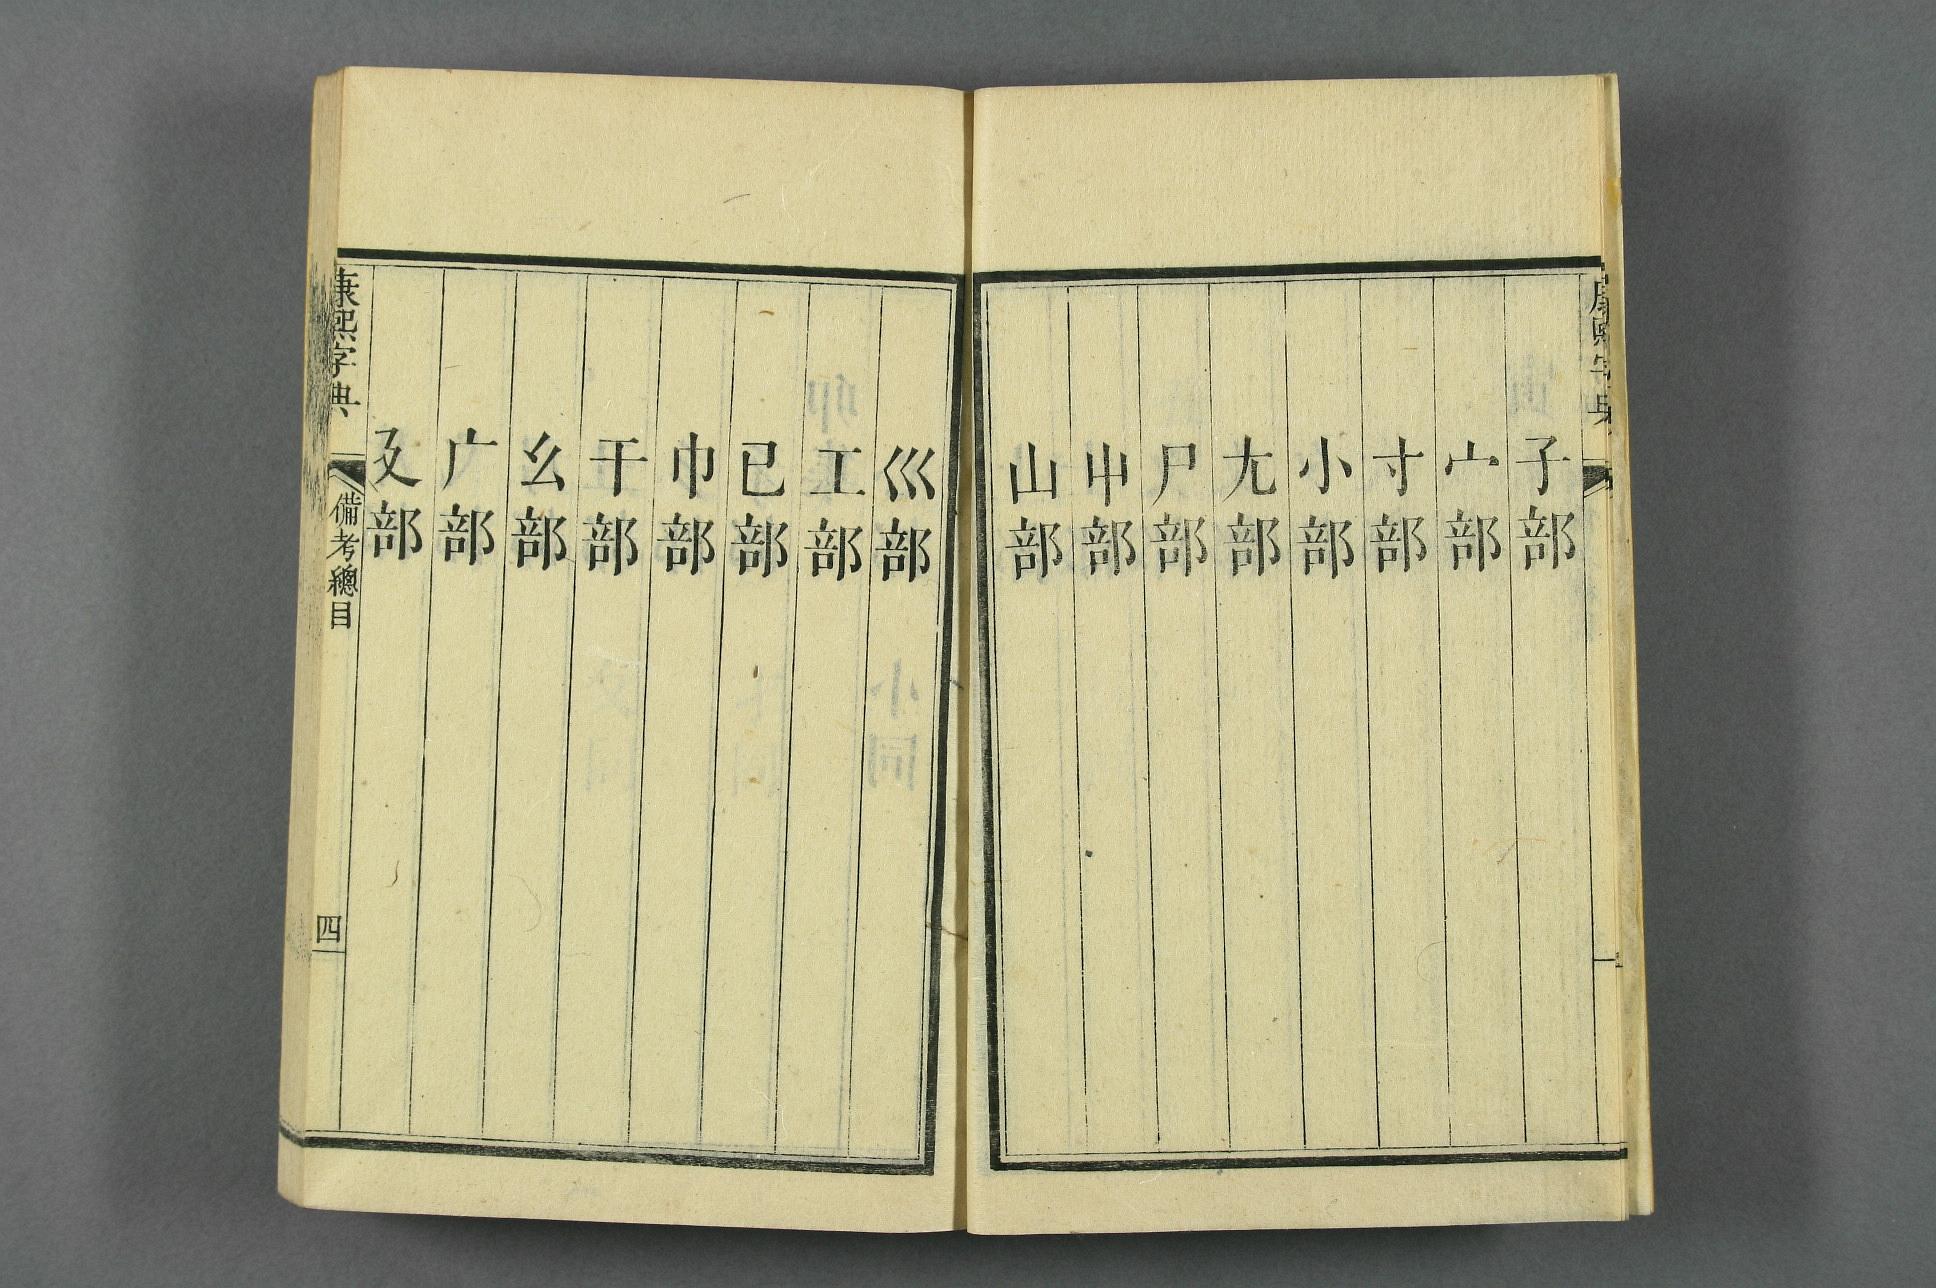 康熙字典
子部
宀部
寸部
小部
尢部
尸部
屮部
山部
巛部
工部
已部
巾部
干部
幺部
广部
廴部
康熙字典
備考總目
四